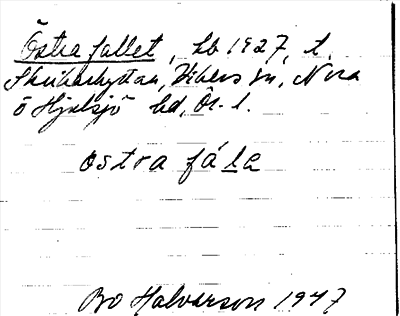 Östra fallet, hb 1927, t.
Skrikarhyttan, Vikers sn, Nora
o Hjulsjö bd, Ör. l.
ostra fá l e
Bo Halvarson 1947